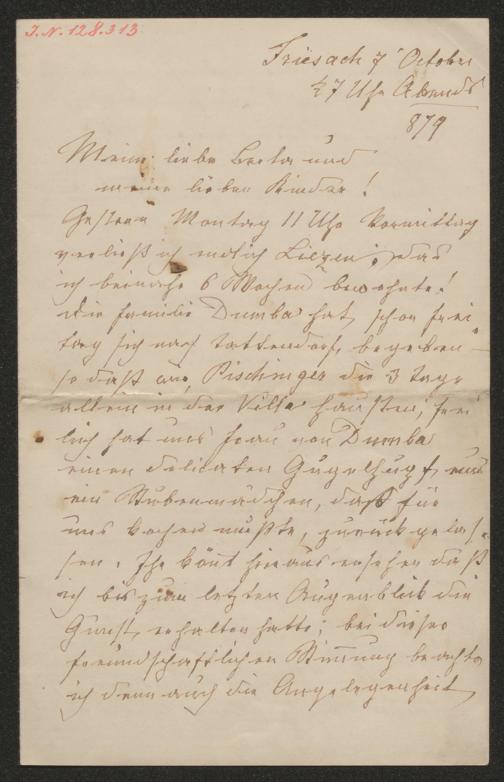 J. N. 128.313
Friesach 7' October
½7 Uhr Abends
879
Meine liebe Berta und
meine lieben Kinder!
Gestern Montag 11 Uhr Vormittag
verließ ich endlich Liezen, das
ich beinahe 6 Wochen bewohnte!
Die Familie Dumba hat schon Frei
tag sich nach Tattendorf begeben
so daß wir, Pischinger die 3 Tage
allein in der Villa hausten; frei
lich hat uns Frau von Dumba
einen delicaten Gugelhupf und
ein Stubenmädchen, daß für
uns kochen mußte, zurückgelas
sen. Ihr könnt hieraus ersehen daß
ich bis zum letzten Augenblick die
Gunst erhalten hatte; bei dieser
freundschaftlichen Stimmung brachte
ich denn auch die Angelegenheit